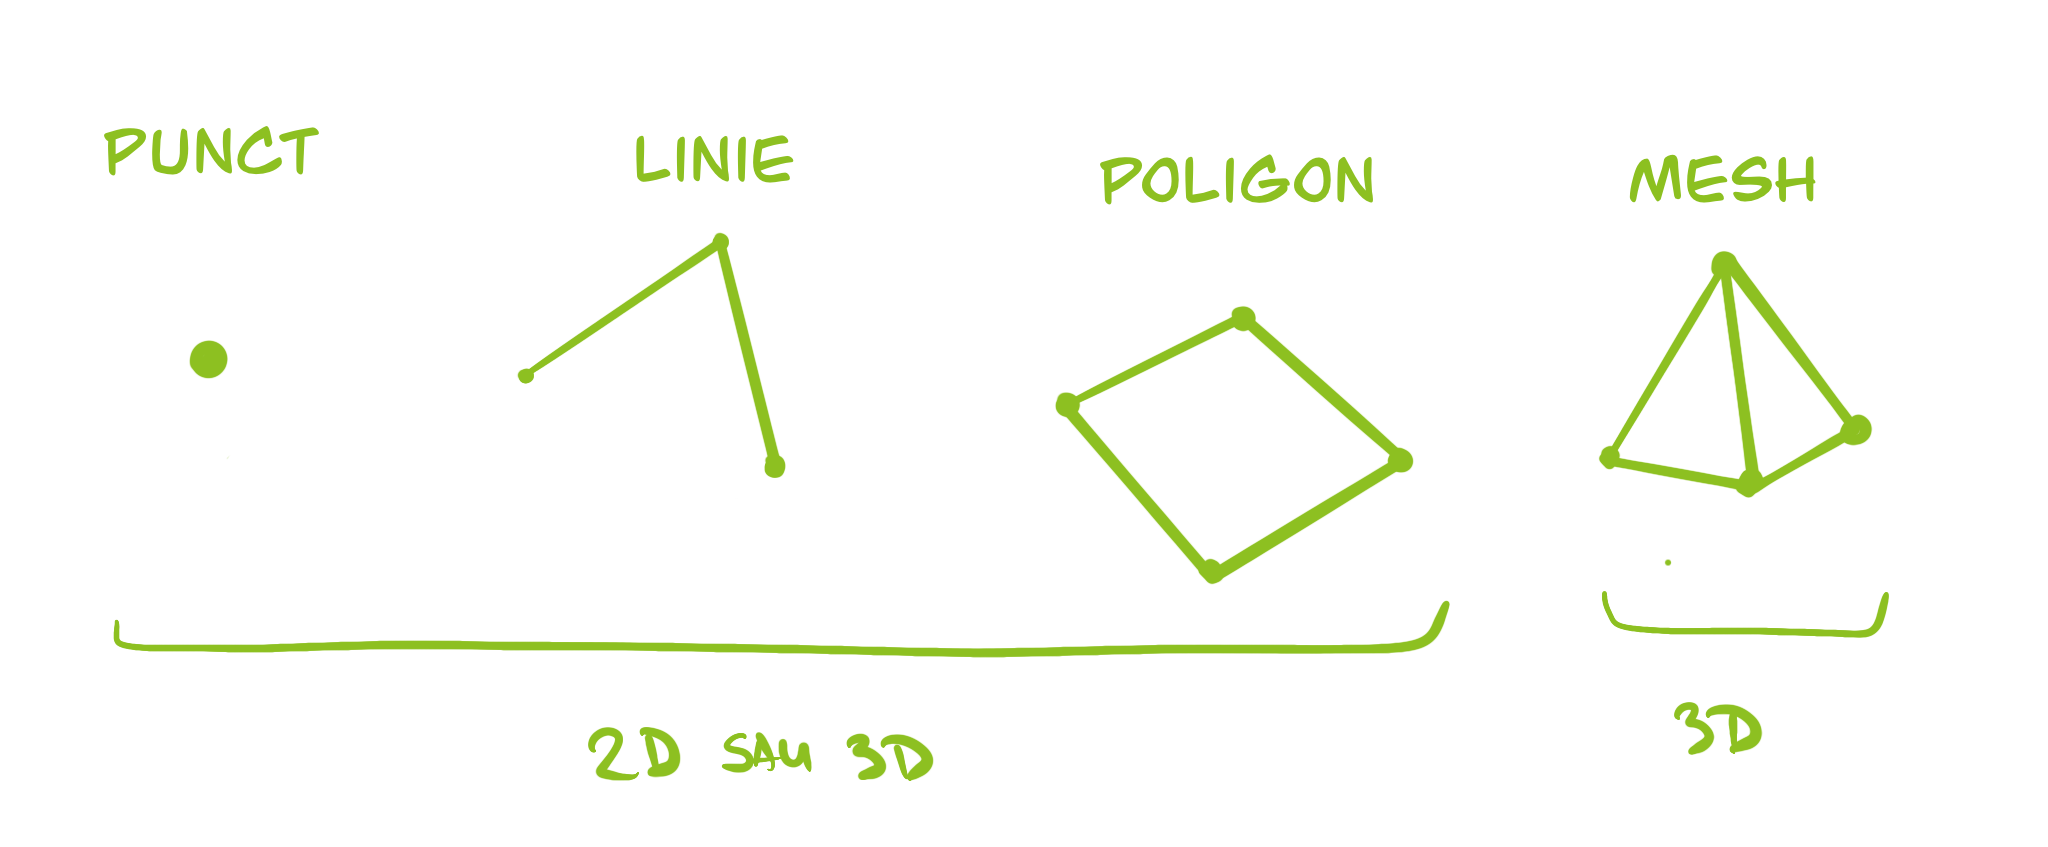 PUNCT
LINIE
POLIGON
MESH
2D SAU 3D
3D